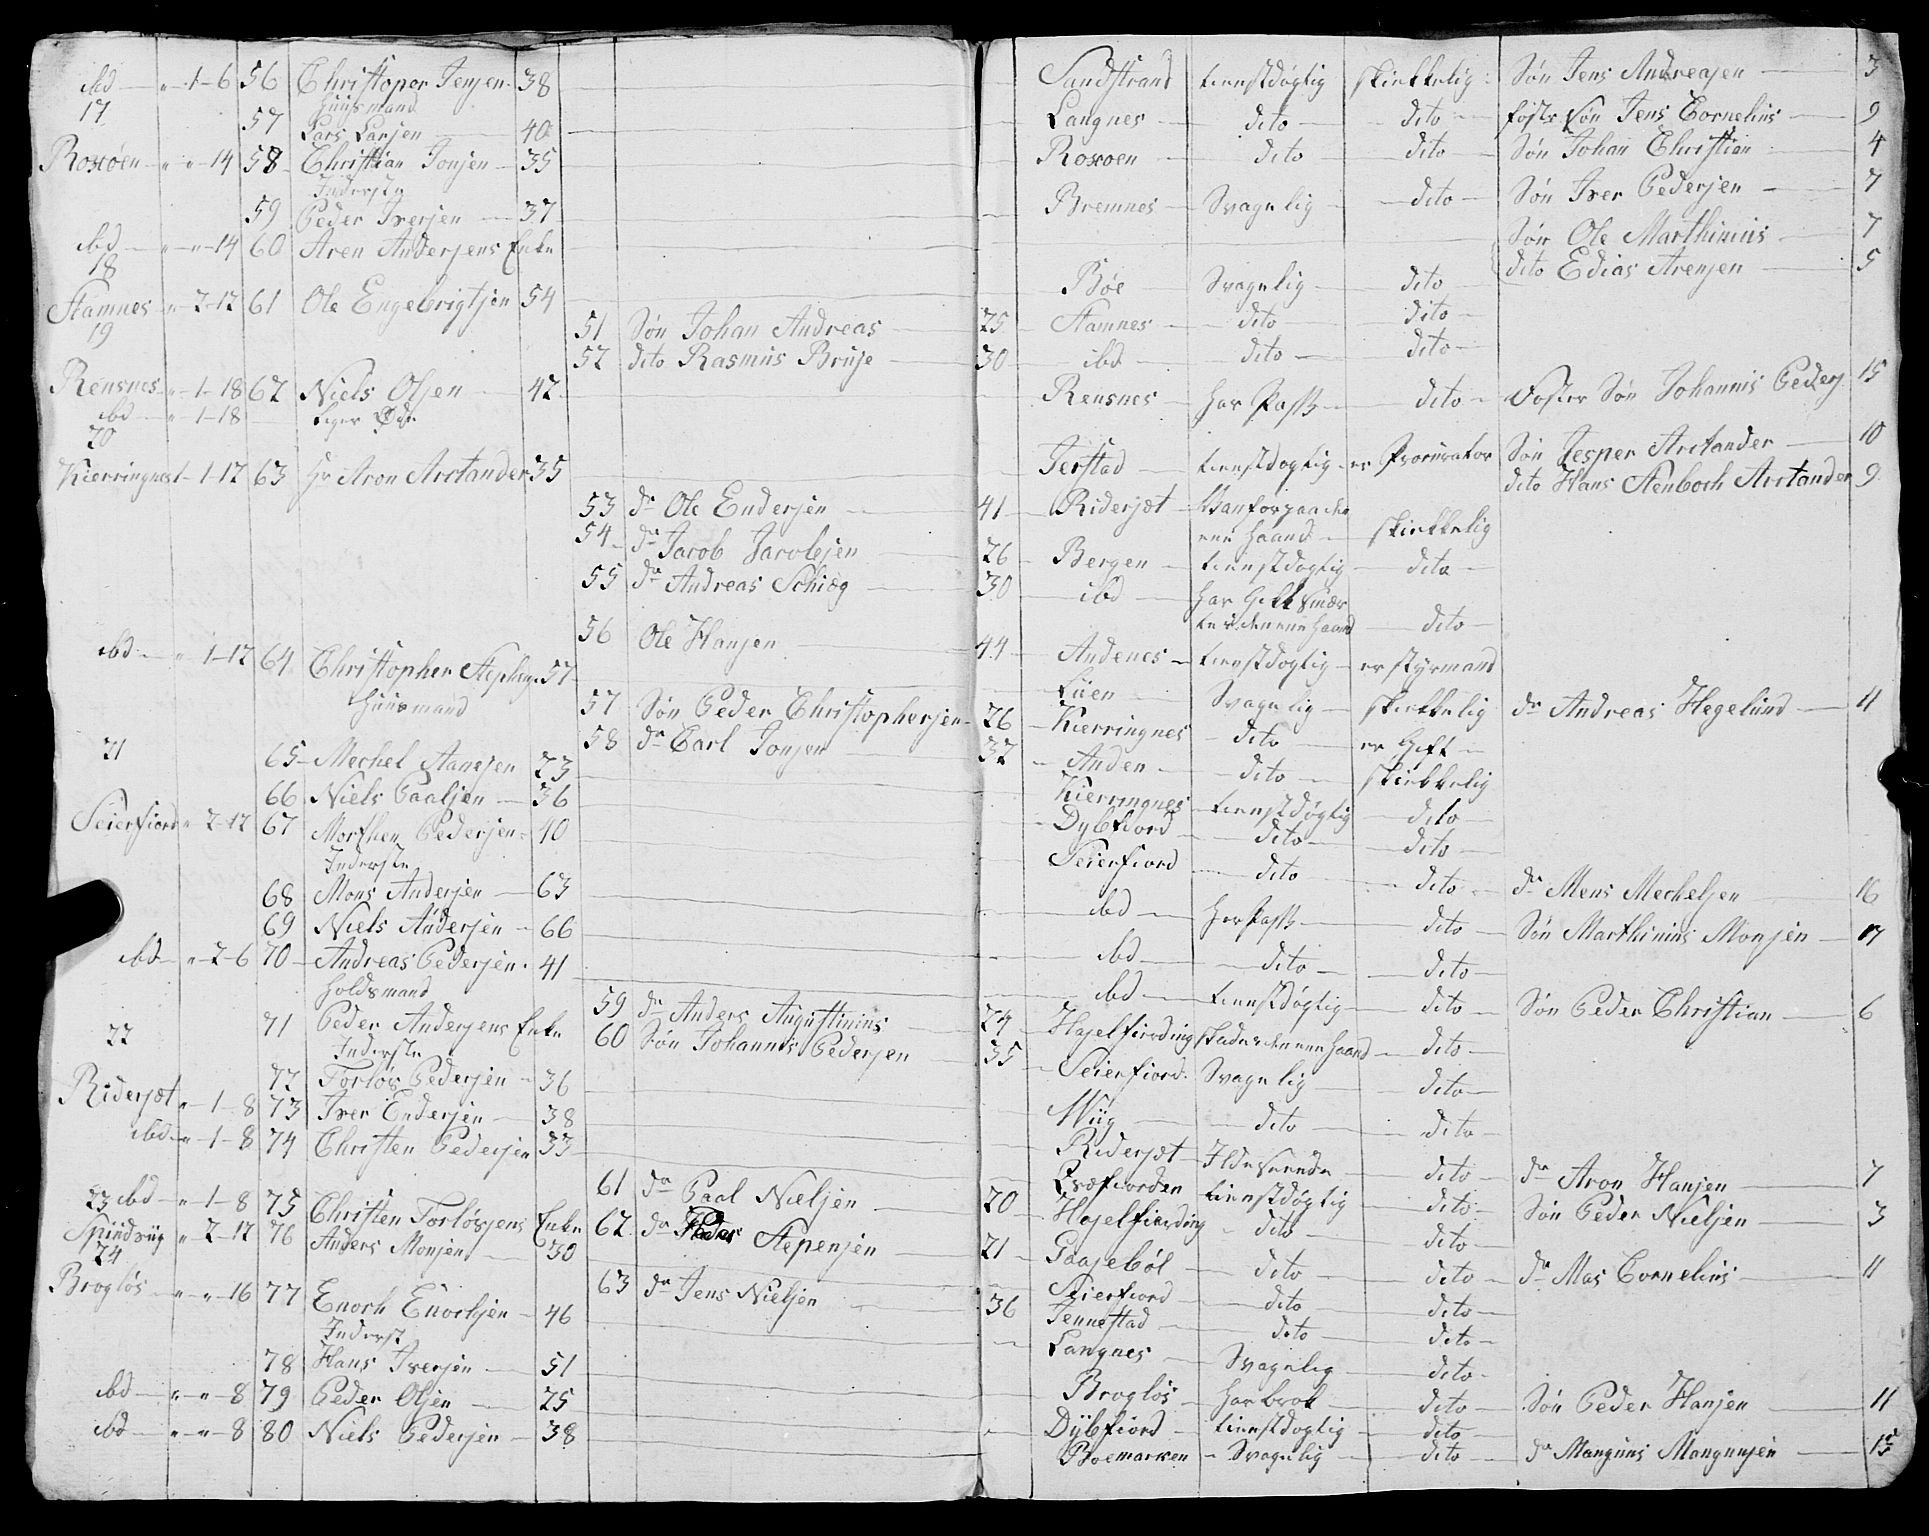 ibd — " 1-6 56 Christopher Jensen 38 Sandstrand tienstdygtig skikkelig Søn Jens Andreasen 3
17 Huusmand
57 Lars Larsen 40 Langnes dito dito foster søn Jens Cornelius 9
Roxøen " " 14 58 Christian Jonsen 35 Roxoen dito dito Søn Johan Christian 4
Inderste
59 Peder Iversen 37 Bremnes Svagelig dito Søn Iver Pedersen 7
ibd " " 14 60 Aren Andersens Enke Søn Ole Marthinius 7
18 dito Edias Arensen 5
Stamnes " 2-12 61 Ole Engebrigtsen 54 Bøe Svagelig dito
19 51 Søn Johan Andreas 25 Stamnes dito dito
52 dito Rasmus Bruse 30 ibd dito dito
Rensnes " 1-18 62 Niels Olsen 42 Rensnes har Pass dito Foster Søn Johannis Peders 15
ibd " 1-18 liger Øde
20
Kierringnes 1-12 63 Hr Aron Arctander 35 Jerstad tienstdygtig er Procurator Søn Jesper Arctander 10
dito Hans Stenboch Arctander 9
53 dr Ole Endersen 41 Ridersæt Vanfør paa den
ene Haand skikkelig
54 dr Jacob Jacobsen 26 Bergen tienstdygtig dito
55 dr Andreas Schieg 30 ibd har Gikt Smer
ter i den ene Haand dito
56 Ole Hansen 44 Andenes tienstdygtig er styrmand
ibd " 1-12 64 Christopher Stephens 57 Lüen Svagelig skikkelig dr Andreas Hegelund 11
Huusmand
57 Søn Peder Christophersen 26 Kierringnes dito er Gift
58 dr Carl Jonsen 32 Anden dito skikkelig
21 65 Mechel Hansen 23 Kierringnes tienstdygtig dito
66 Niels Paalsen 36 Dybfiord dito dito
Seierfiord " 2-12 67 Morthen Pedersen 40 Seierfiord dito dito dr Mens Mechelsen 16
Inderste
68 Mons Andersen 63 ibd har Pass dito Søn Marthinius Monsen 17
69 Niels Andersen 66 ibd dito dito
ibd " 2-6 70 Andreas Pedersen 41 ibd tienstdygtig dito Søn Peder Christian 6
Holdsmand
59 dr Anders Augustinius 24 Haselfierding skade i den ene Haand dito
22 71 Peder Andersens Enke 60 Søn Johannes Pedersen 35 Seierfiord Svagelig dito
Inderste
72 Torløs Pedersen 36 Wiig dito dito
Ridersæt " 1-8 73 Iver Endersen 38 Ridersæt Ildeseende dito dr Aron Hansen 7
ibd " 1-8 74 Christen Pedersen 33 Qvæfiorden tienstdygtig dito Søn Peder Nielsen 3
61 dr Paal Nielsen 20 Haselfierding dito dito
23 ibd " 1-8 75 Christen Torløsens Enke 62 dr Peder Stepensen 21 Gaasebøl dito dito dr Mas Cornelius 11
Spindviig " 2-12 76 Anders Monsen 30 Seierfiord dito dito
24 63 dr Jens Nielsen 36 Jennestad dito dito
Brogløs " " 16 77 Enoch Enochsen 46 Langnes Svagelig dito
Inderst
78 Hans Iversen 51 Brogløs har brok dito Søn Peder Hansen 11
ibd " " 8 79 Peder Olsen 25 Dybfiord tienstdygtig dito
ibd " " 8 80 Niels Pedersen 38 Boemarken Svagelig dito dr Mangnus Mangnusen 15